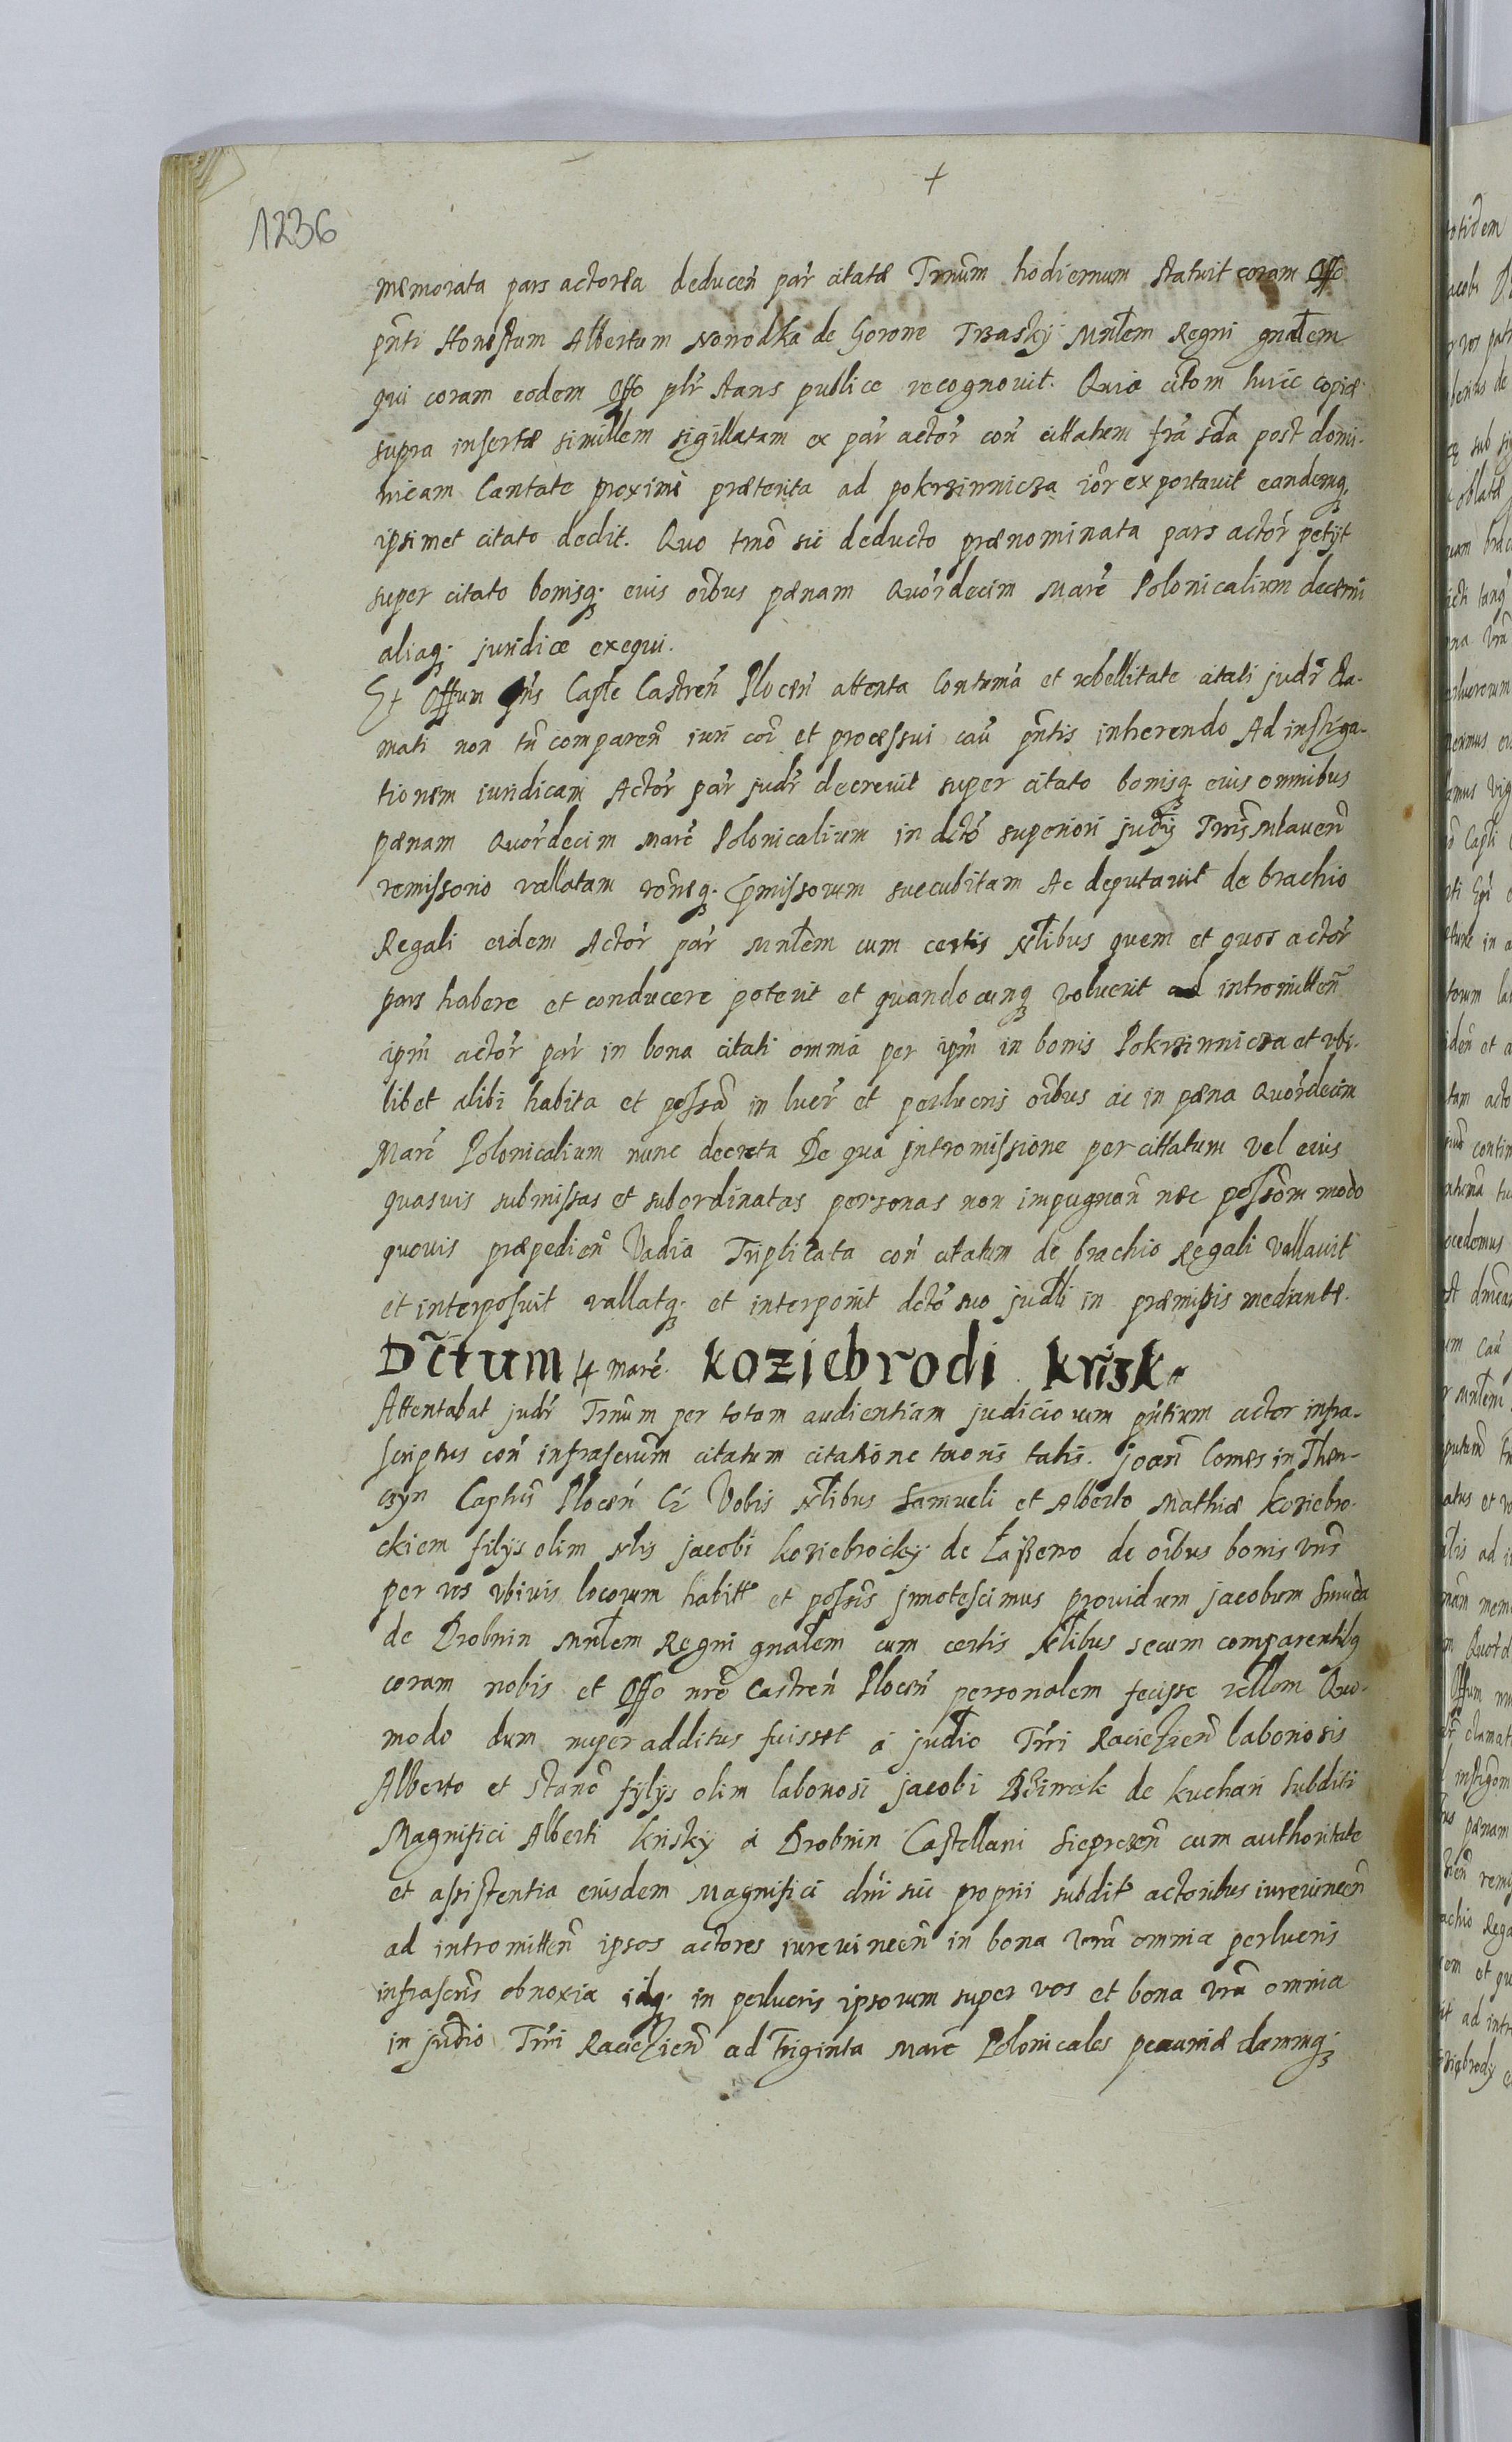 +
1236
memorata pars actorea deduceń par citatæ Trnûm hodiernum statuit coram Offo
pñti Honestum Albertum Nowodka de Gorone Trzasky Mnłem Regni gnałem
qui coram eodem Offo plr̃ stans publice recognouit. Quia citõm huic copiæ
supra insertæ simillem sigillatam ex par actor coñ cittatum fr̃a sc̃da post domi-
nicam Cantate proxime præterita ad pokrzinnicza iõr exportauit eandemq.
ipsimet citato dedit. Quo tmõ sic deducto prænominata pars actor petÿt
super citato bonisq. euis oĩbus pænam Quordecim Marc̃ Polonicalium decerni
aliaq. juridice exequi.
Et Offum Pñs Capłe Castreń Plocen attenta Contumã et rebellitate citati judr̃ cla-
mati non tñ compareñ iuri coĩ et processui cau pñtis inherendo Ad instiga-
tionem iuridicam Actor par judr̃ decreuit super citato bonisq. eius omnibus
pænam Quordecim Marc̃ Polonicalium in dctõ superiori judĩj Trris Mlaueñ
remissorio vallatam rõneq. pmissorum succubitam Ac deputauit de brachio
Regali eidem Actor par Mnłem cum certis Nłibus quem et quos actor
pars habere et conducere poterit et quandocunq voluerit ad intromitteñ
ipm̃ actor par in bona citati omnia per ipm̃ in bonis Pokrzinnicza et vbi-
libet alibi habita et possã in lucr̃ et perlucris oĩbus ac in pæna Quordecim
Marc̃ Polonicalium nunc decreta De qua jntromissione per cittatum vel eius
quasuis submissas et subordinatas personas non impugnañ nec possõm modo
quouis præpedieñ Vadia Triplicata coñ citatum de brachio Regali vallauit
et interposuit vallatq. et interponit dctõ suo judłi in præmissis mediante.
Dc̃tum 14 marc̃. Koziebrodi Krisk.
Attentabat judr̃ Trnûm per totam audientiam judiciorum pñtium actor infra-
scriptus coñ infrascrũm citatum citatione tenoris talis. Joañ Comes in Then-
czyn Captus̃ Plocen Cź Vobis Nłibus Samueli et Alberto Mathiæ koziebro-
ckiem filÿs olim Nłis jacobi koziebrocky de Łassewo de oĩbus bonis vris̃
per vos vbiuis locorum habitt̃ et possis̃ jnnotescimus prouidum jacobum Smuda
de Drobnin Mnłem Regni gnałem cum certis Nłibus secum comparentibq
coram nobis et Offo nrõ Castreń Plocen personalem fecisse rellõm Quo-
modo dum nuper additus fuisset a judio Trri Raciezieñ laboriosis
Alberto et Stanõ fÿlÿs olim laboriosi jacobi de kuchari subditi
Magnifici Alberti krisky a Drobnin Castellani Sieprceñ cum authoritate
et assistentia eiusdem Magnifici dñi sui proprii subdit̃ actoribus iurevinceñ
ad intromitteñ ipsos actores iurevinceñ in bona vrã omnia perlucris
infrascris̃ obnoxia idq. in perlucris ipsorum super vos et bona vrã omnia
in judio Trri Raciezieñ ad Triginta Marc̃ Polonicales pecuniæ damniq.